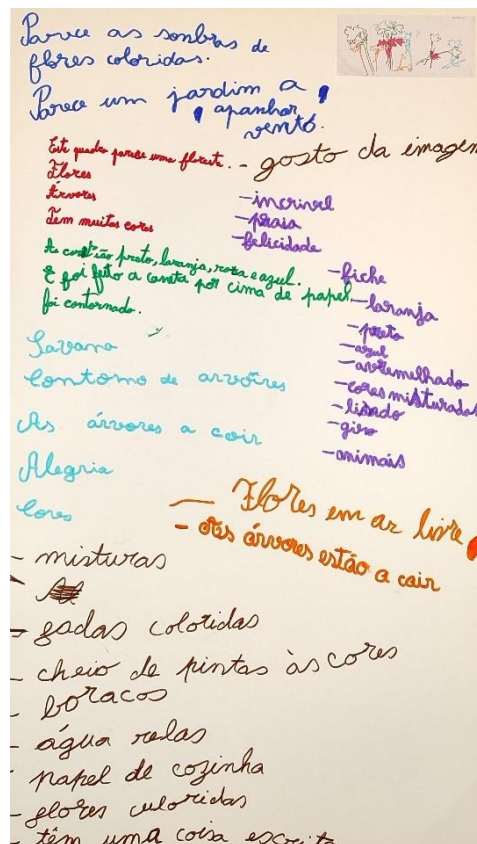 Parece as sombras de
flores coloridas.
Parece um jardim a
apanhar
vento.
Este quadro parece uma floresta.
Flores
Árvores
Tem muitas cores
- gosto da imagem
- incrivel
- praia
- felicidade
As cores são preto, laranja, roxa e azul.
E foi feito a caneta por cima de papel.
foi contornado.
- fiche
- laranja
- preto
- azul
- avremelhado
- cores misturadas
- lisado
- giro
- animais
Savana
Contorno de arvoires
As árvores a cair
Alegria
Cores
- Flores em ar livre
- as árvores estão a cair
- misturas
- fadas coloridas
- cheio de pintas às cores
- boracos
- água relas
- papel de cozinha
- flores culoridas
- têm uma coisa escrita